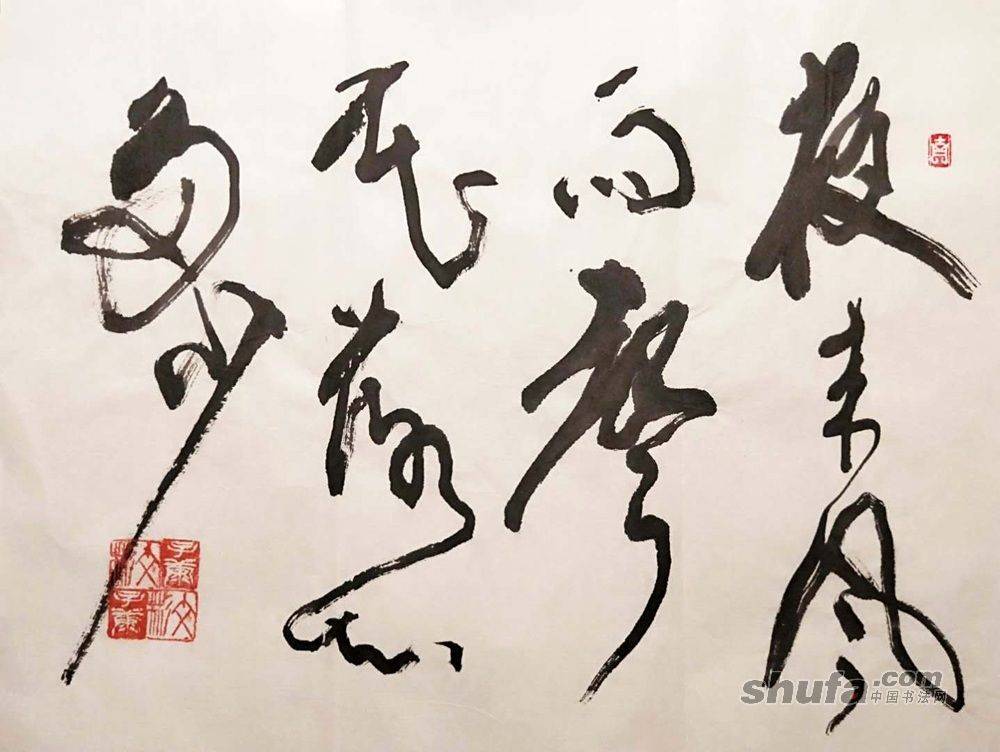 夜来风
雨声
花落知
多少
shufa.com
中国书法网